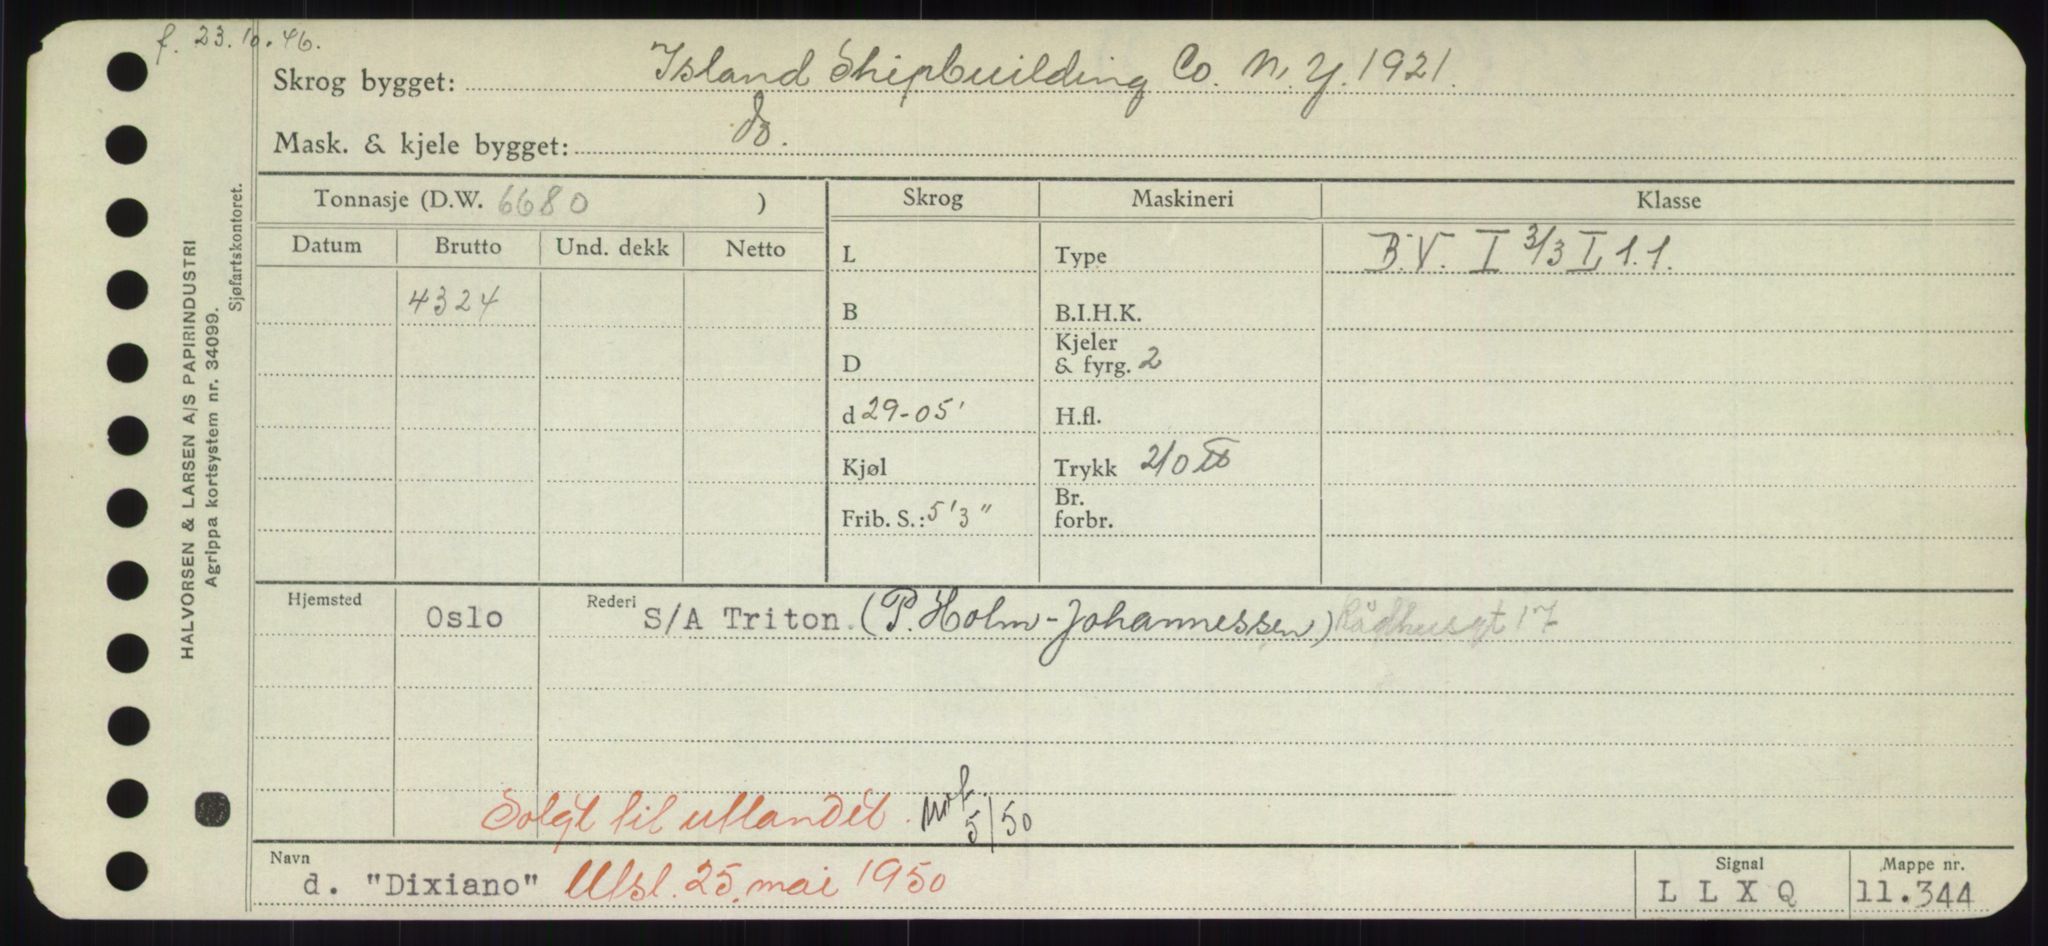 f. 23.10.46.
Skrog bygget: Island Shipbuilding Co. N.Y. 1921.
Mask. & kjele bygget: do.
Tonnasje (D.W. 6680 )
Skrog
Maskineri
Klasse
Datum
Brutto
Und. dekk
Netto
L
Type
B.V. I 3/3 L 1.1.
4324
B
B.I.H.K.
D
Kjeler
& fyrg. 2
d 29-05'
H.fl.
Kjøl
Trykk 210 lb
Frib. S.: 5'3"
Br.
forbr.
Hjemsted
Oslo
Rederi
S/A Triton. (P. Holm-Johannessen) Rådhusgt 17
Solgt til utlandet. 5/50
Navn
d. "Dixiano" Utsl. 25. mai 1950
Signal
L L X Q
Mappe nr.
11.344
HALVORSEN & LARSEN A/S PAPIRINDUSTRI
Agrippa kortsystem nr. 34099.
Sjøfartskontoret.